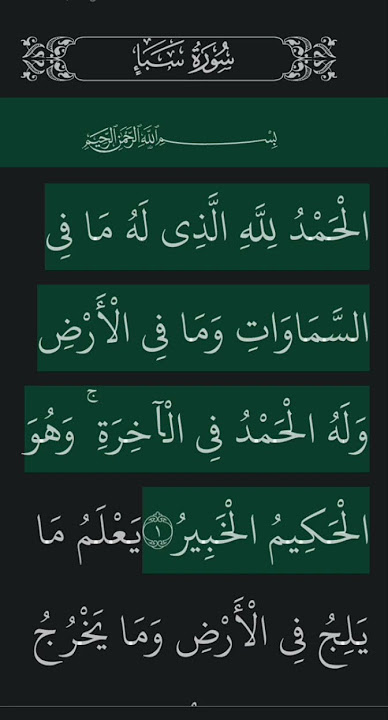 سُورَةُ سَبَإٍ
بِسْمِ اللَّهِ الرَّحْمَنِ الرَّحِيمِ
الْحَمْدُ لِلَّهِ الَّذِى لَهُ مَا فِى
السَّمَاوَاتِ وَمَا فِى الْأَرْضِ
وَلَهُ الْحَمْدُ فِى الْآخِرَةِ ۚ وَهُوَ
الْحَكِيمُ الْخَبِيرُ ﴿١﴾ يَعْلَمُ مَا
يَلِجُ فِى الْأَرْضِ وَمَا يَخْرُجُ